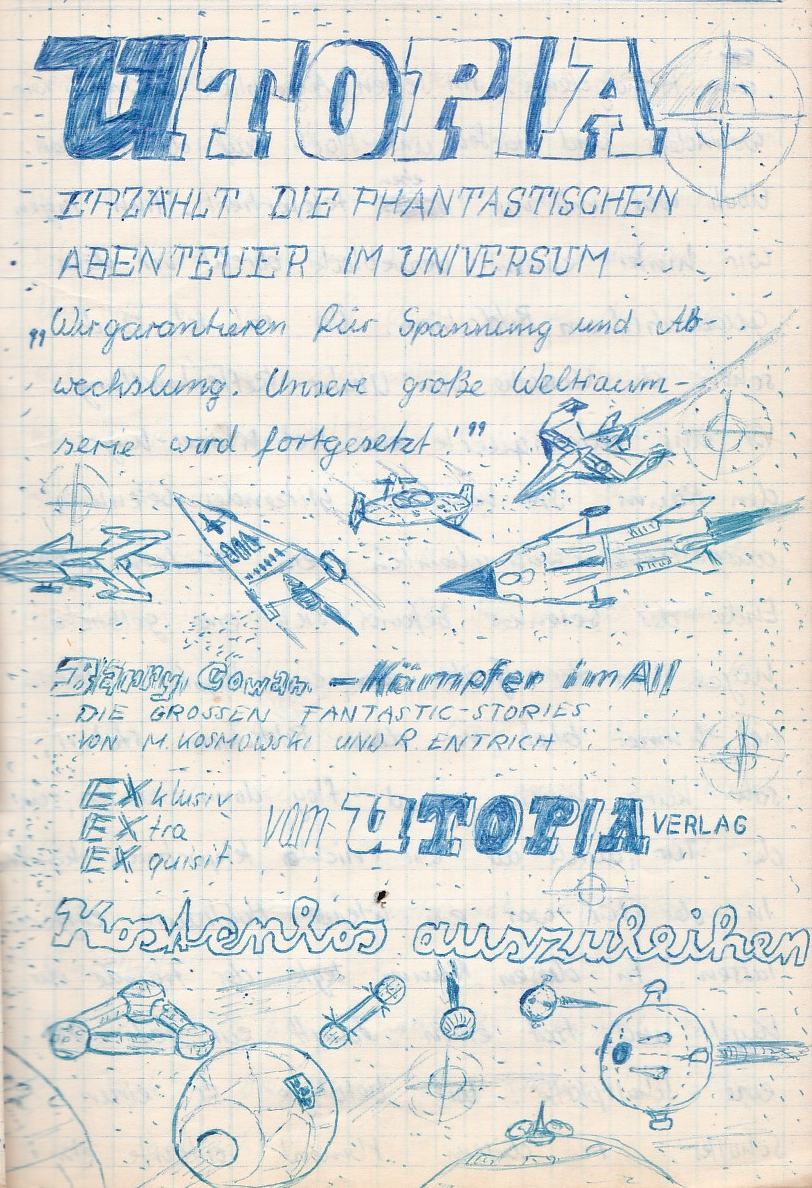 UTOPIA
ERZÄHLT DIE PHANTASTISCHEN
ABENTEUER IM UNIVERSUM
„Wir garantieren für Spannung und Ab-
wechslung. Unsere große Weltraum-
serie wird fortgesetzt!"
Barry Gowan - Kämpfer im All
DIE GROSSEN FANTASTIC-STORIES
VON M. KOSMOWSKI UND R. ENTRICH
EXklusiv
EXtra
EXquisit
vom UTOPIA VERLAG
Kostenlos auszuleihen